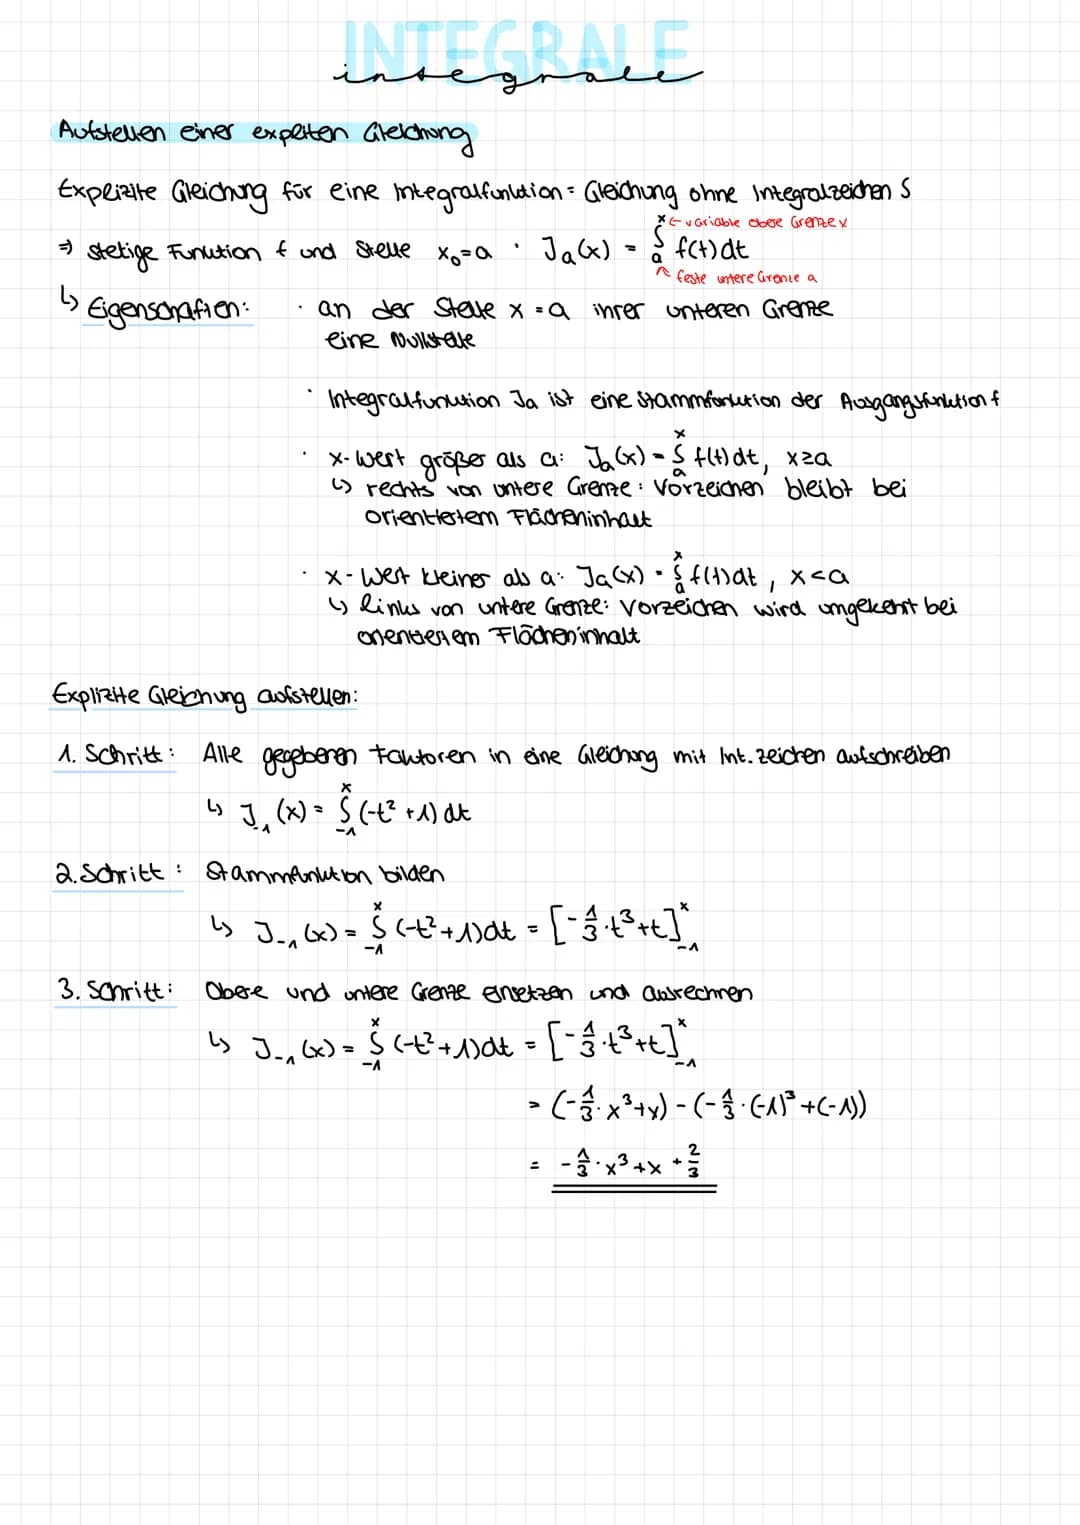 INTEGRALE
integrale
Aufstellen einer expliten Gleichung
Explizite Gleichung für eine Integralfunktion = Gleichung ohne Integralzeichen ∫
x ← variable obere Grenze x
⇒ stetige Funktion f und Stelle x₀=a · Ja(x) = ∫ₐˣ f(t)dt
↖ feste untere Grenze a
↳ Eigenschaften: · an der Stelle x = a ihrer unteren Grenze
eine Nullstelle
· Integralfunktion Ja ist eine Stammfunktion der Ausgangsfunktion f
· x-Wert größer als a: Ja(x) = ∫ₐˣ f(t)dt, x≥a
↳ rechts von untere Grenze: Vorzeichen bleibt bei
orientiertem Flächeninhalt
· x-Wert kleiner als a: Ja(x) = ∫ₐˣ f(t)dt, x<a
↳ links von untere Grenze: Vorzeichen wird umgekehrt bei
orientiertem Flächeninhalt
Explizite Gleichung aufstellen:
1. Schritt: Alle gegebenen Faktoren in eine Gleichung mit Int.zeichen aufschreiben
↳ J₋₁(x) = ∫₋₁ˣ (-t² +1) dt
2. Schritt: Stammfunktion bilden
↳ J₋₁(x) = ∫₋₁ˣ (-t²+1)dt = [-1/3·t³+t]₋₁ˣ
3. Schritt: Obere und untere Grenze einsetzen und ausrechnen
↳ J₋₁(x) = ∫₋₁ˣ (-t²+1)dt = [-1/3·t³+t]₋₁ˣ
= (-1/3·x³+x) - (-1/3·(-1)³+(-1))
= -1/3·x³+x+2/3